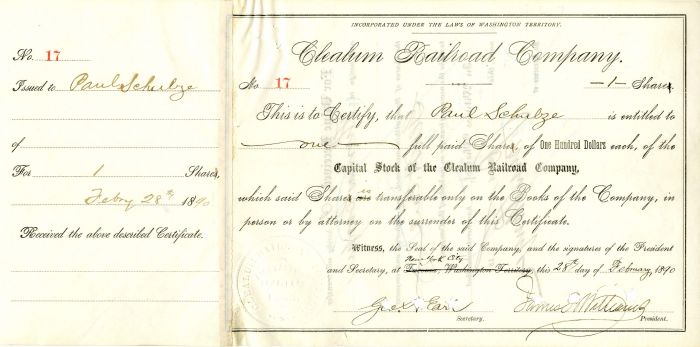 No. 17
Issued to Paul Schulze
of
For 1 Shares,
Febry 28th 1890
Received the above described Certificate.
INCORPORATED UNDER THE LAWS OF WASHINGTON TERRITORY.
Clealum Railroad Company.
No 17 —1— Shares
This is to Certify, that Paul Schulze is entitled to
one full paid Shares, of One Hundred Dollars each, of the
Capital Stock of the Clealum Railroad Company,
which said Shares is are transferable only on the Books of the Company, in
person or by attorney on the surrender of this Certificate.
Witness, the Seal of the said Company, and the signatures of the President
New York City
and Secretary, at Tacoma, Washington Territory, this 28th day of February, 1890
Geo. S. Earl James Williams
Secretary. President.